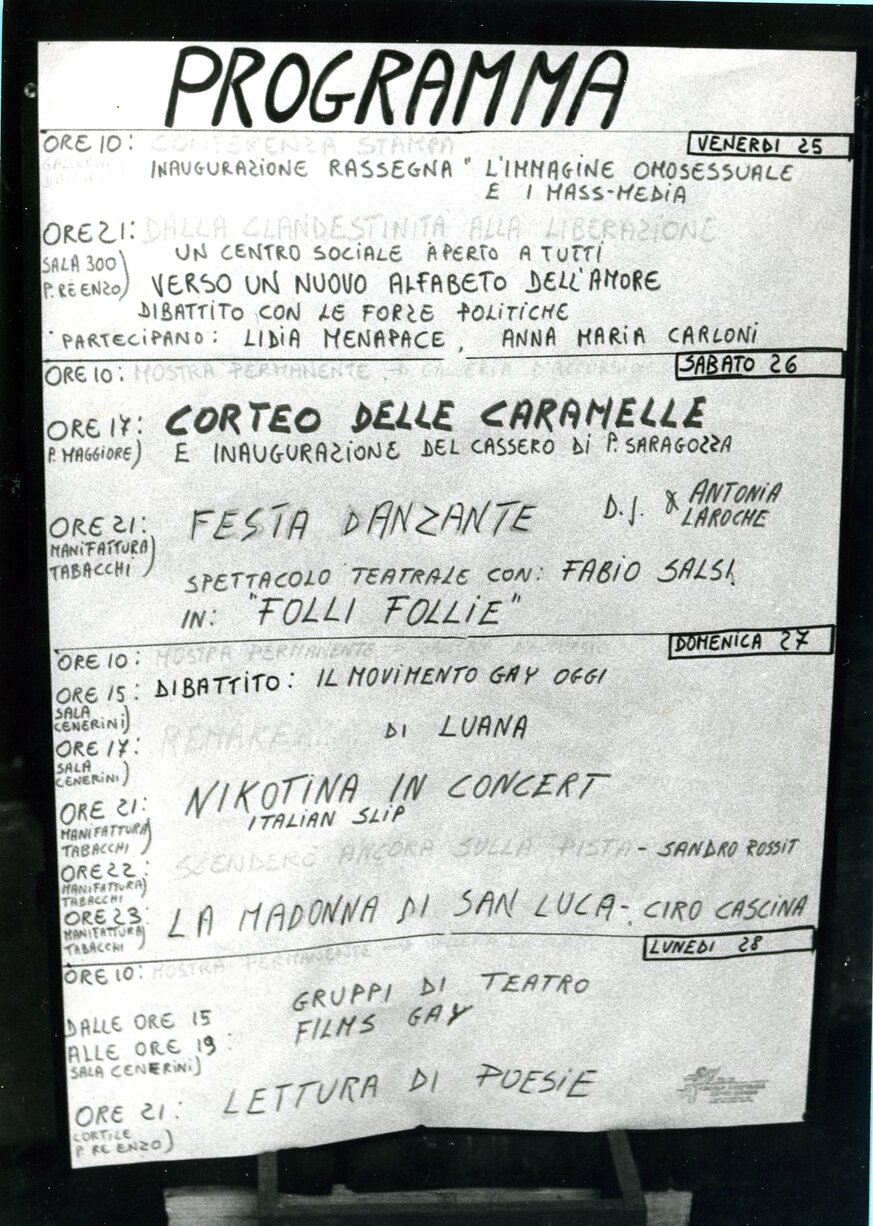 PROGRAMMA
VENERDI 25
ORE 10: CONFERENZA STAMPA
INAUGURAZIONE RASSEGNA "L'IMMAGINE OMOSESSUALE
E I MASS-MEDIA
ORE 21: DALLA CLANDESTINITÀ ALLA LIBERAZIONE
SALA 300
P. RE ENZO)
UN CENTRO SOCIALE APERTO A TUTTI
VERSO UN NUOVO ALFABETO DELL'AMORE
DIBATTITO CON LE FORZE POLITICHE
PARTECIPANO: LIDIA MENAPACE, ANNA MARIA CARLONI
SABATO 26
ORE 10: MOSTRA PERMANENTE → GALLERIA D'ACCURSIO
ORE 17: CORTEO DELLE CARAMELLE
P. MAGGIORE) E INAUGURAZIONE DEL CASSERO DI P. SARAGOZZA
ORE 21: FESTA DANZANTE D.J. & ANTONIA
LAROCHE
MANIFATTURA
TABACCHI)
SPETTACOLO TEATRALE CON: FABIO SALSI
IN: "FOLLI FOLLIE"
DOMENICA 27
ORE 10: MOSTRA PERMANENTE
ORE 15: DIBATTITO: IL MOVIMENTO GAY OGGI
SALA
CENERINI)
ORE 17: DI LUANA
SALA
CENERINI)
ORE 21: NIKOTINA IN CONCERT
ITALIAN SLIP
MANIFATTURA
TABACCHI)
ORE 22: SCENDERÒ ANCORA SULLA PISTA - SANDRO ROSSIT
MANIFATTURA)
TABACCHI
ORE 23: LA MADONNA DI SAN LUCA - CIRO CASCINA
MANIFATTURA)
TABACCHI
LUNEDI 28
ORE 10: MOSTRA PERMANENTE
DALLE ORE 15
ALLE ORE 19:
SALA CENERINI)
GRUPPI DI TEATRO
FILMS GAY
ORE 21: LETTURA DI POESIE
CORTILE
P. RE ENZO)